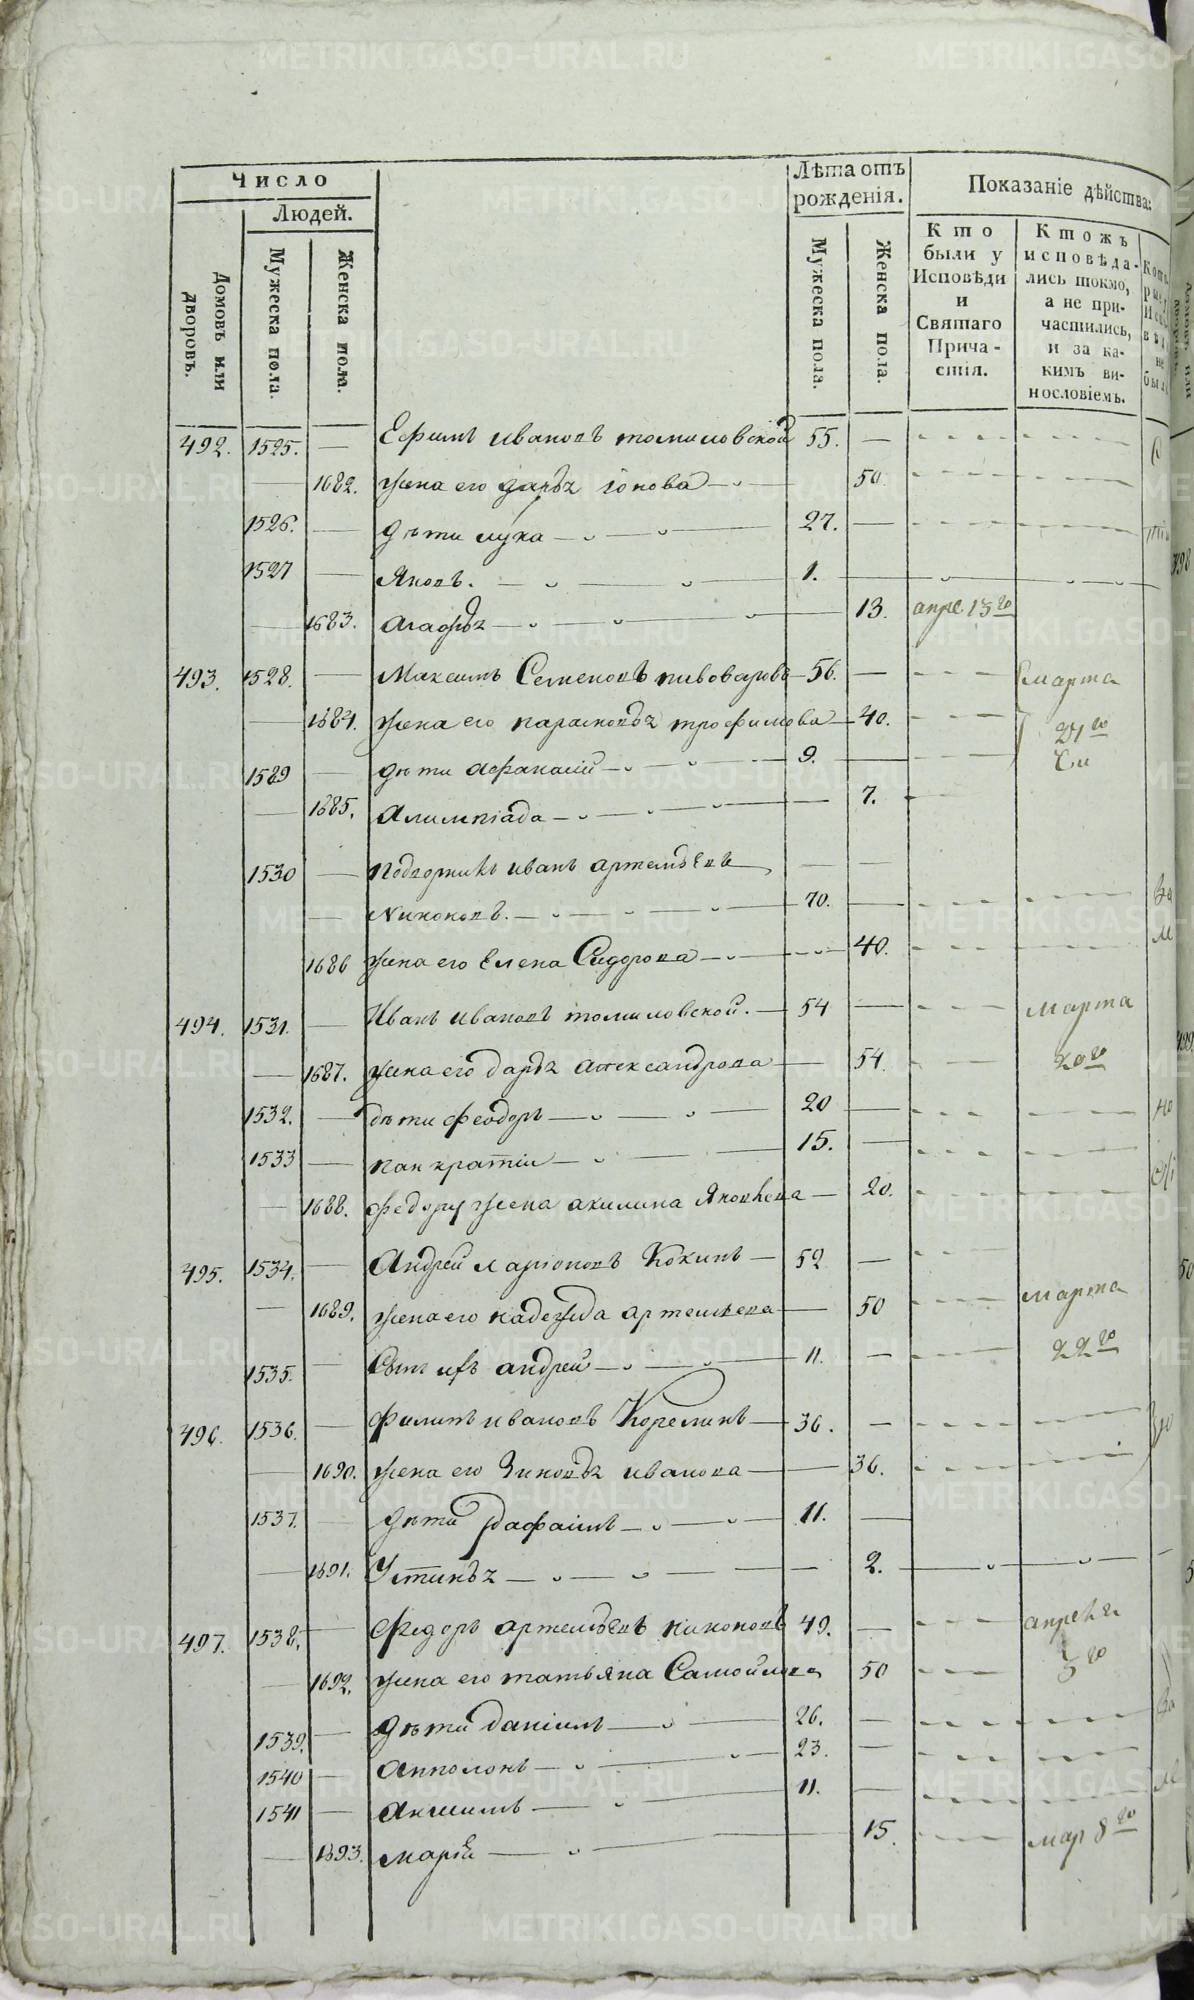 Число
Людей.
Домовъ или дворовъ.
Мужеска пола.
Женска пола.
Лѣта отъ рожденія.
Мужеска пола.
Женска пола.
Показаніе дѣйства:
Кто были у Исповѣди и Святаго Причастія.
Ктожъ исповѣдались токмо, а не причастились, и за какимъ винословіемъ.
492. 1525. — Ефимъ ивановъ томиловской 55. —
— 1682. жена его дарья іонова — 50.
1526. — дѣти лука — 27. —
1527 — Яковъ. — 1. —
— 1683. агафья — 13. апре. 13го
493. 1528. — Максимъ Семеновъ пивоваровъ 56. — марта
— 1684. жена его парасковья трофимова — 40. 24го
1529 — дѣти афанасій — 9. —
— 1685. Алимпіада — 7.
1530 — подворникъ иванъ артемьевъ — —
— Никоновъ. — 70. —
1686 жена его Елена Сидорова — 40.
494. 1531. — Иванъ ивановъ томиловской. — 54 — марта
— 1687. жена его дарья александрова — 54. 20го
1532. — дѣти феодоръ — 20 —
1533 — панкратіи — 15. —
— 1688. федору жена акилина Яковлева — 20.
495. 1534. — Андрей ларіоновъ Кокинъ — 52 —
— 1689. жена его надежда артемьева — 50 марта
1535. — Сынъ ихъ андрей — 11. — 22го
496. 1536. — филипъ ивановъ Корелинъ — 36. —
— 1690. жена его Зиновья иванова — 36.
1537. — дѣти рафаилъ — 11. —
— 1691. Устинья — 2.
497. 1538. — Федоръ артемьевъ никоновъ 49. — апреля
— 1692. жена его татьяна Самойлова 50 3го
1539. — дѣти даніилъ — 26. —
1540 — апполонъ — 23. —
1541 — — 11. —
— 1693. — 15. мар 8го